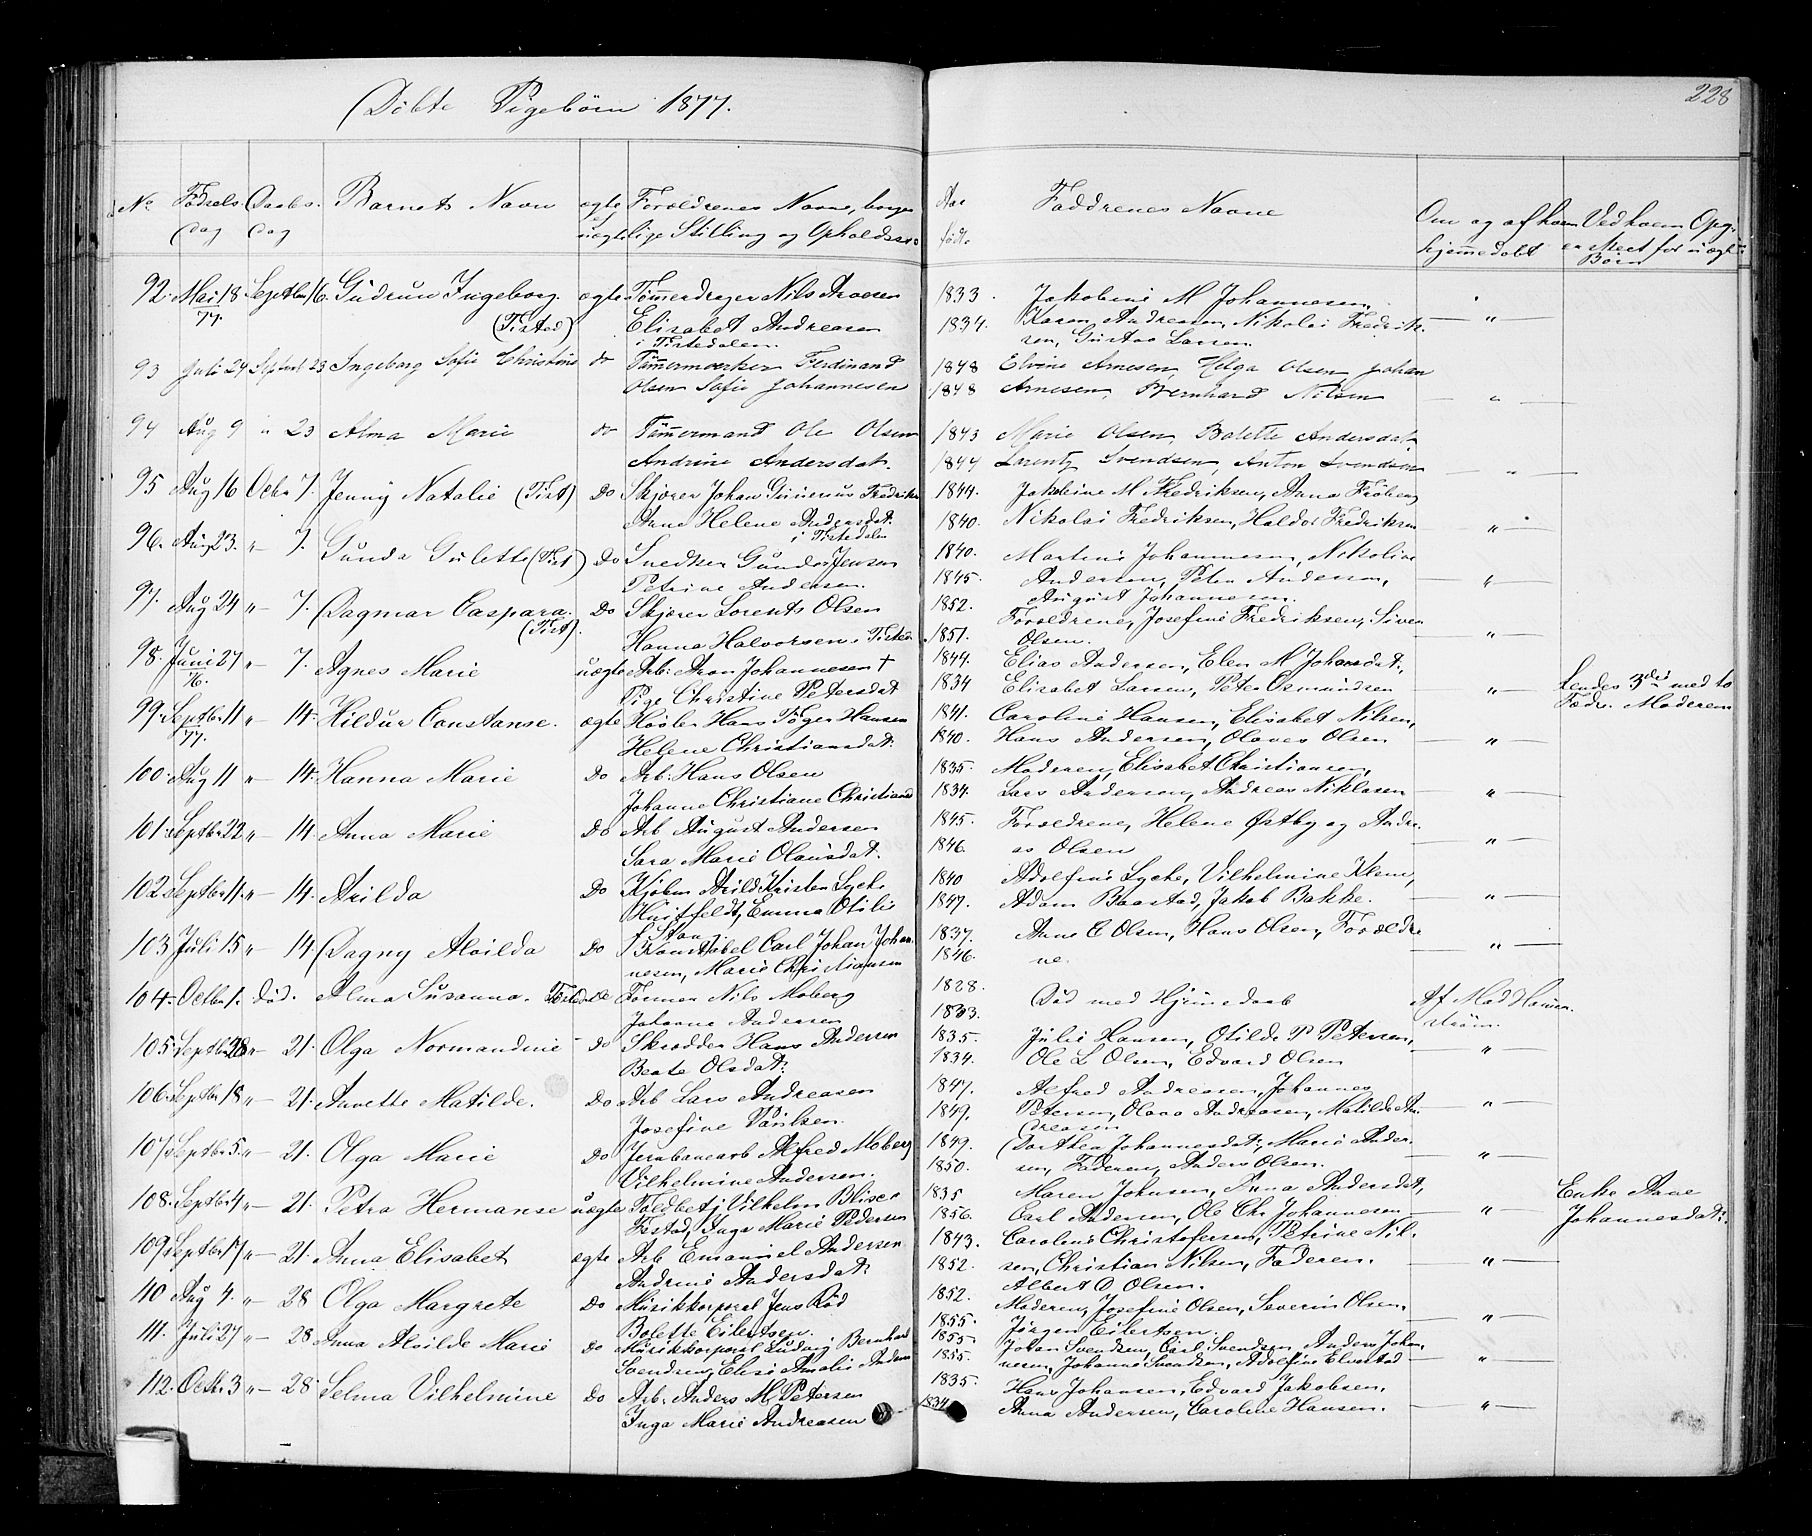 Döbte Pigebörn 1877.
228
No Fødsels Dag Daabs Dag Barnets Navn ægte uægte Forældrenes Navne, borger lige Stilling og Opholdss. Aar født. Faddrenes Navne Om og af hvem hjemmedöbt Ved hvem Opg. er Meet for uægte Börn
92. Mai 18 77. Septbr 16. Gudrun Ingeborg. (Tisted) ægte Tömmerdrager Nils
Elisabet Andreasen i Tistedalen.
1833. Jakobine M Johannesen,
1834. Karen Andreasen, Nikolai Fredrik-
sen, Gustav Larsen. "
93 Juli 24 Septbr 23 Ingeborg Sofie Christine do Tömmermærker Ferdinand
Olsen Sofie Johannesen
1848 Elvine Arnesen, Helga Olsen Johan
1848 Arnesen, Bernhard Nilsen "
94 Aug 9 " 23 Alma Marie do Tömmermand Ole Olsen
Andrine Andersdat.
1843 Marie Olsen, Bolette Andersdat
1844 Lorentz Svendsen, Anton Svendsen "
95 Aug 16 Octbr 7. Jenny Natalie (Tist) Do Skjærer Johan Gunerius Fredriks
Anne Helene Andersdat. i Tistedalen
1844. Jakobine M Fredriksen, Anna Fröberg
1840. Nikolai Fredriksen, Haldor Fredriksen "
96. Aug 23. " 7. Gunda Gulette (Tist) Do Snedker Gunder Jensen
Petrine Andersen.
1840. Martine Johannesen, Nikoline
1845. Andersen, Peter Andersen,
August Johannesen. "
97. Aug 24 " 7. Dagmar Caspara. (Tist). Do Skjærer Lorents Olsen
Hanna Halvorsen i Tisted
1852. Forældrene, Josefine Fredriksen, Siver
1851. Olsen. "
98. Juni 27 76. " 7. Agnes Marie uægte Arb: Aron Johannesen †
Pige Christine Petersdat
1844. Elias Andersen, Elen M Johansdat,
1834 Elisabet Larsen, Peter Osmundsen " Lendes 3die med to
Fædr. Moderen
99. Septbr 11 77. " 14. Hildur Constanse. ægte Høvler Hans Töger Hansen
Helene Christiansdat:
1841. Caroline Hansen, Elisabet Nilsen,
1840. Hans Andersen, Olaves Olsen "
100. Aug 11 " 14. Hanna Marie Do Arb: Hans Olsen
Johanne Christiane Christians
1835. Moderen, Elisabet Christiansen,
1834. Lars Andersen, Andreas Niklasen "
101. Septbr 22 " 14. Anna Marie Do Arb August Andersen
Sara Marie Olausdat.
1845. Forældrene, Helene Østby og Andre-
1846. as Olsen "
102. Septbr 11. " 14. Arilda Do Kjøbm Arild Kristen Lycke
Huitfeldt, Emma Otilie f. Stang.
1840 Adolfine Lycke, Vilhelmine Klem,
1847. Adam Baastad, Jakob Bakke. "
103 Juli 15 " 14. Dagny Alvilda Do Konstabel Carl Johan Johan-
nesen, Marie Christiansen
1837. Anne E Olsen, Hans Olsen, Forældre
1846. ne. "
104. Octbr 1. död. Alma Susanna. Tistedalen Former Nils Moberg
Johanne Andersen
1828. Död med Hjemmedaab
1833. Af Mad Hammer-
ström.
105. Septbr 28 " 21. Olga Normandine Do Skrædder Hans Andersen
Beate Olsdat:
1835. Julie Hansen, Otilde P Petersen,
1834. Ole L Olsen, Edvard Olsen "
106. Septbr 18 " 21. Anette Matilde. Do Arb Lars Andreasen
Josefine Paulsen.
1847. Alfred Andreasen, Johannes
1849. Petersen, Olava Andreasen, Matilde An-
dreasen "
107. Septbr 5. " 21. Olga Marie Do Jernbanearb Alfred Moberg
Vilhelmine Andersen.
1849. Dorthea Johannesdat; Marie Ander-
1850. sen, Faderen, Anders Olsen. "
108. Septbr 4 " 21. Petra Hermanse uægte Toldbetj Vilhelm Blixe
Tistad, Inga Marie Pedersen
1835 Maren Johnsen, Anna Andersdat,
1856. Carl Andersen, Ole Chr Johannesen " Enke Anne
Johannesdat:
109. Septbr 17 " 21. Anna Elisabet ægte Arb Emanuel Andersen
Andrine Andersdat:
1843. Caroline Christofersen, Petrine Nil-
1852. sen, Christian Nilsen, Faderen. "
110 Aug 4. " 28 Olga Margrete Do Musikkorporal Jens Röd
Bolette Eilertsen.
Albert D Olsen.
1852. Moderen, Josefine Olsen, Severin Olsen,
1855. Jörgen Eilertsen. "
111. Juli 27 " 28 Anna Alvilde Marie Do Musikkorporal Ludvig Bernhard
Svendsen, Elise Amalie Anders
1855. Johan Svendsen, Carl Svendsen, Anders Johan-
1855. nesen, Johanne Svendsen, Adolfine Elvestad "
112. Octbr 3 " 28. Selma Vilhelmine Do Arb: Anders M. Petersen
Inga Marie Andreasen
1835. Hans Johansen, Edvard Jakobsen,
1834 Anna Andersen, Caroline Hansen. "